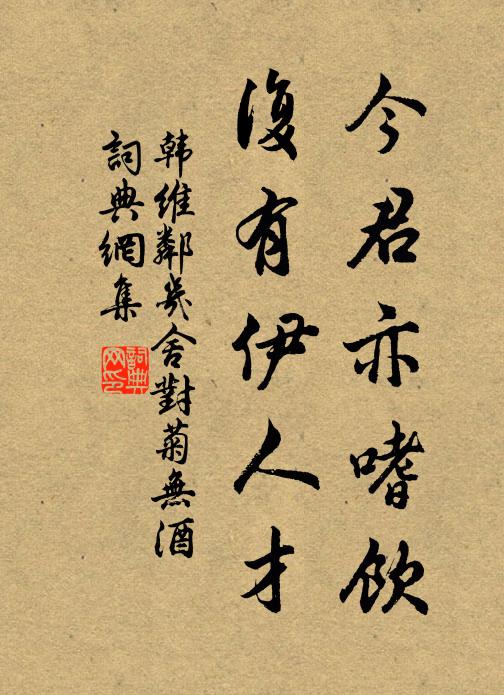 今君亦嗜飲
復有伊人才
韩維鄰幾舍對菊無酒
詞典網集
詞典網印